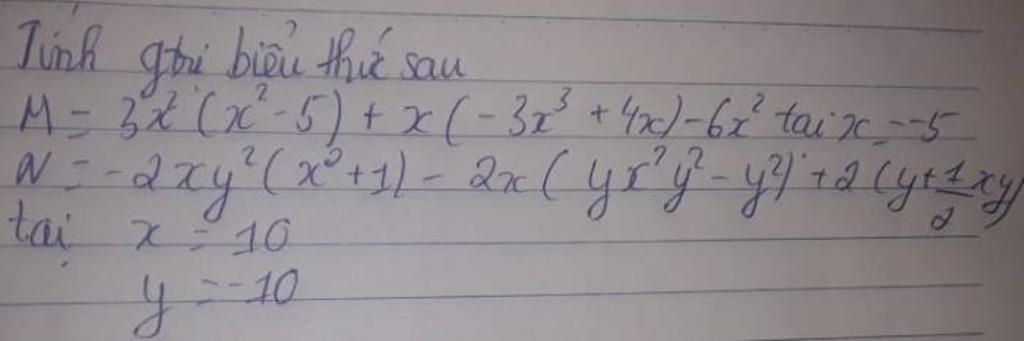 Tính gtrị biểu thức sau
M = 3x² (x² - 5) + x (-3x³ + 4x) - 6x² tại x = -5
N = -2xy² (x² + 1) - 2x ( yx²y² - y²) + 2 (y + 1/2 xy)
tại x = 10
y = -10